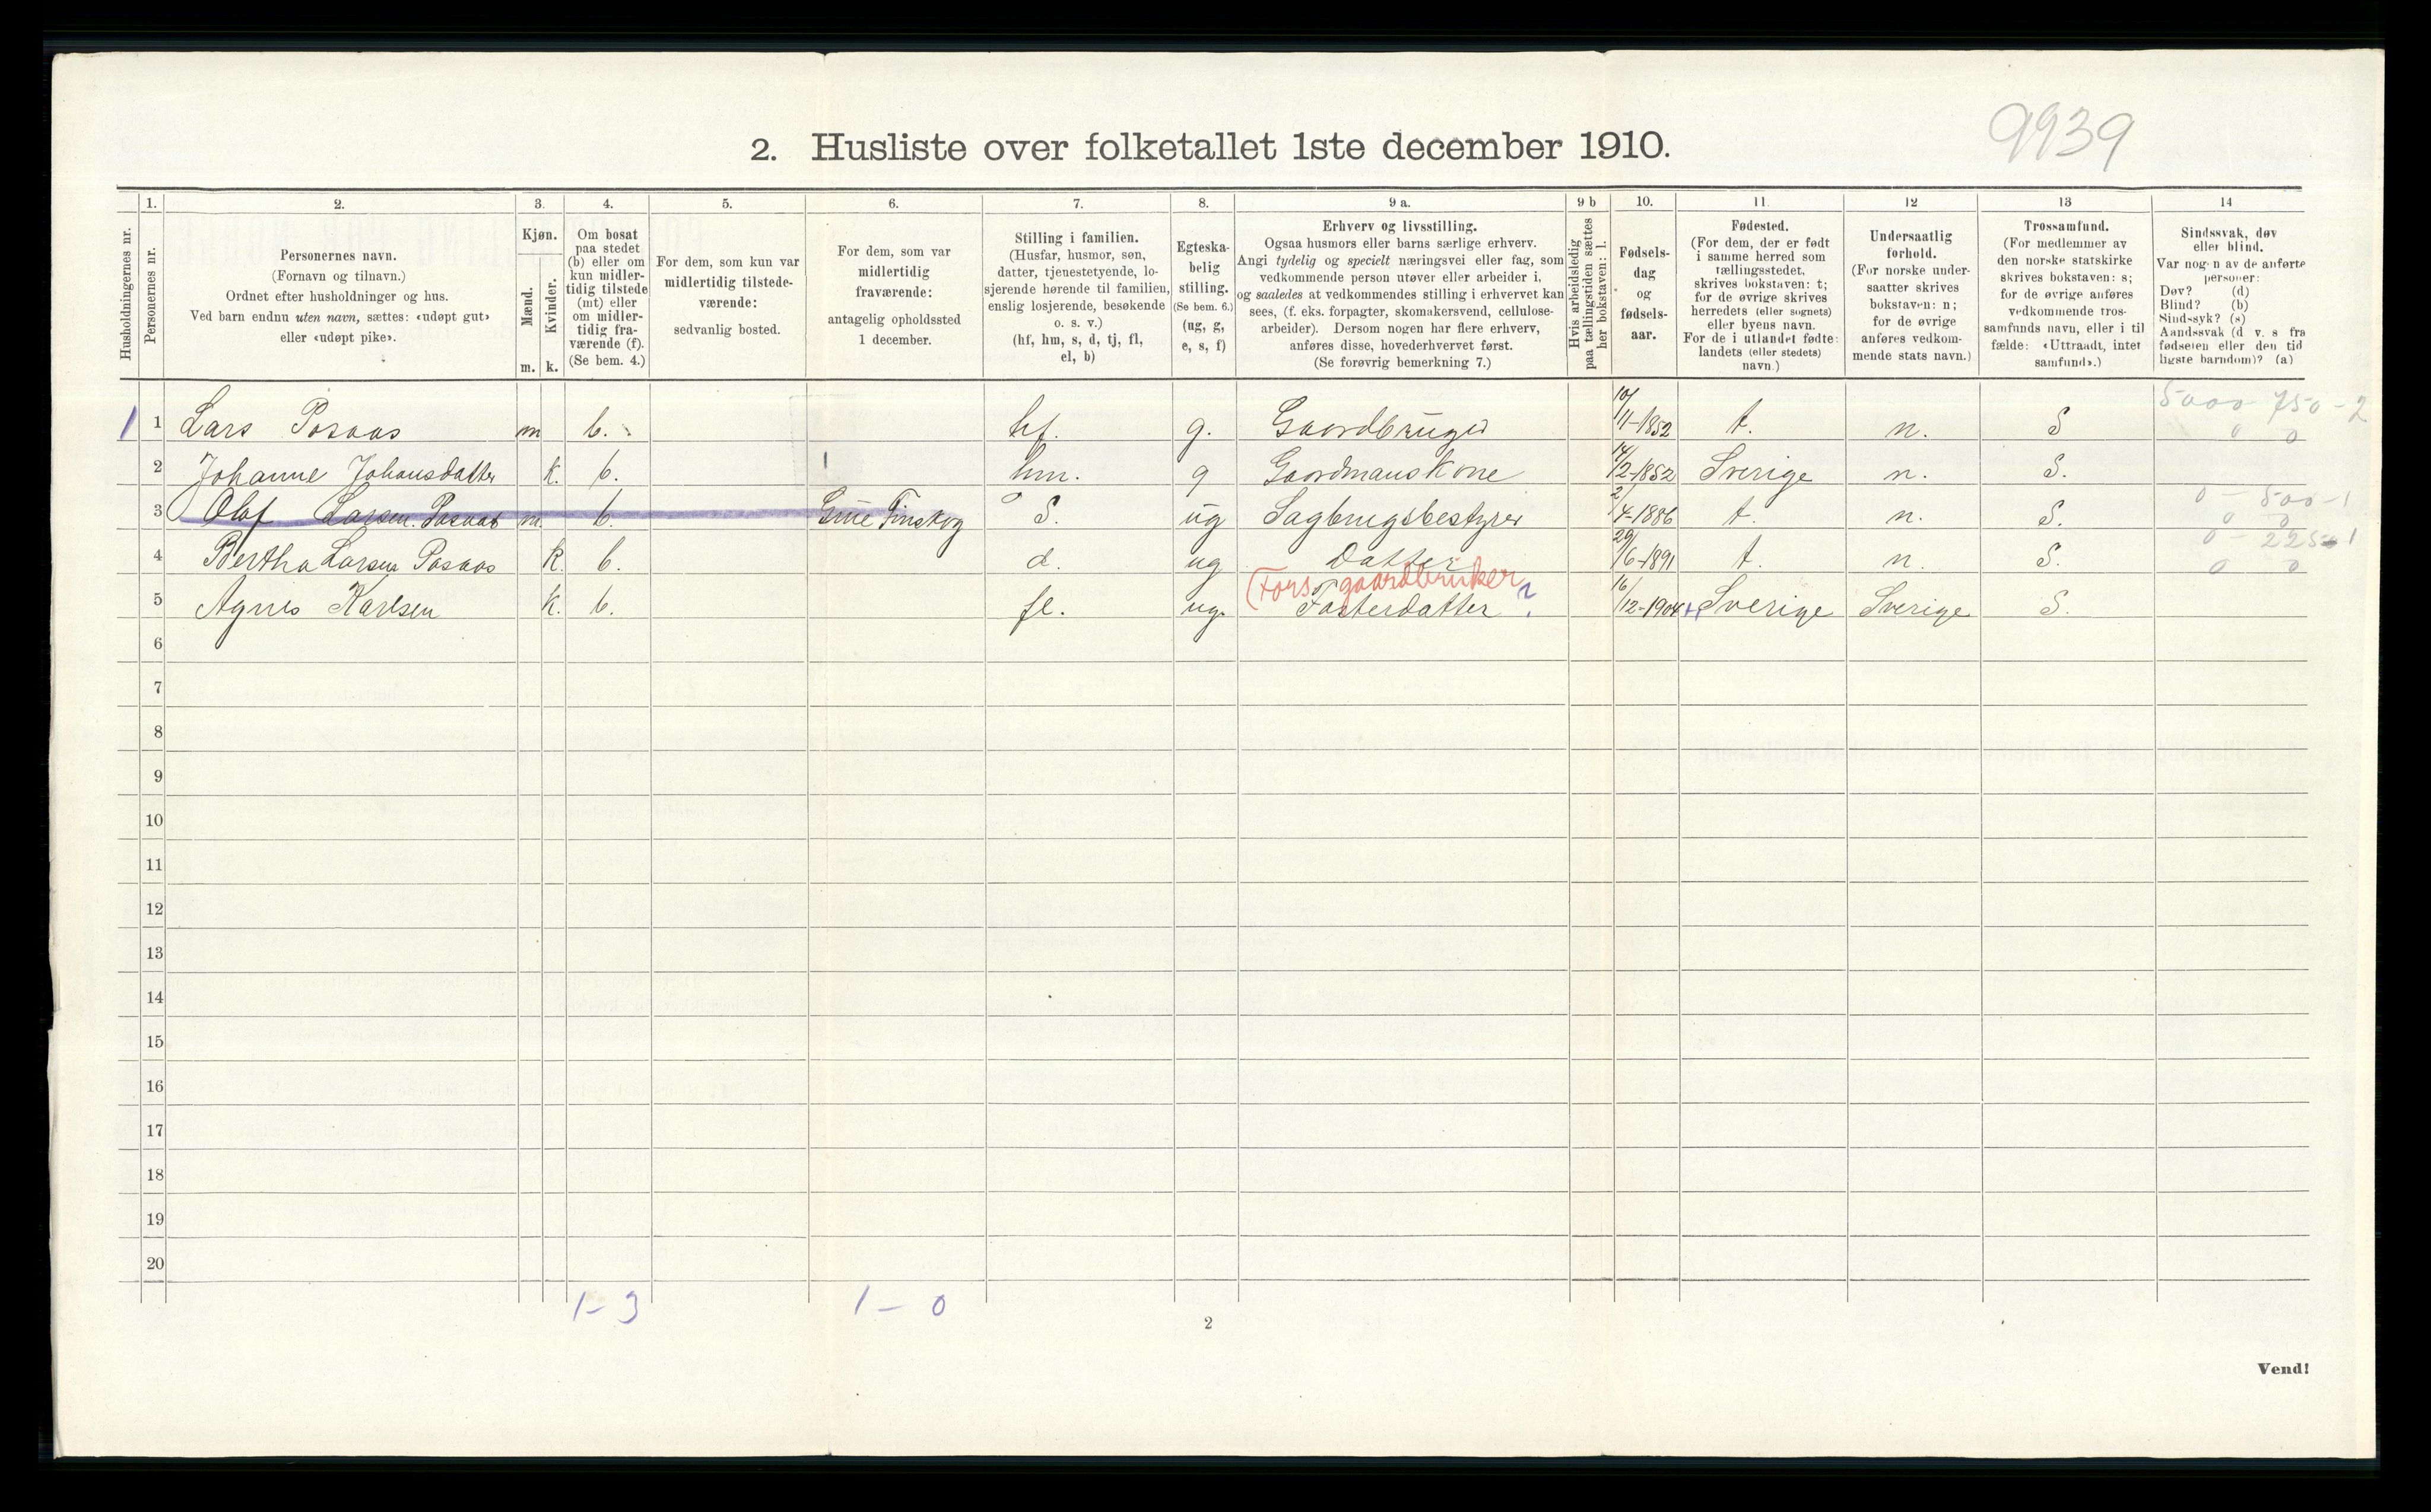 9939
2. Husliste over folketallet 1ste december 1910.
Husholdningernes nr.
1.
Personernes nr.
2.
Personernes navn.
(Fornavn og tilnavn.)
Ordnet efter husholdninger og hus.
Ved barn endnu uten navn, sættes: «udøpt gut»
eller «udøpt pike».
3.
Kjøn.
Mænd.
Kvinder.
m. k.
4.
Om bosat
paa stedet
(b) eller om
kun midler-
tidig tilstede
(mt) eller
om midler-
tidig fra-
værende (f).
(Se bem. 4.)
5.
For dem, som kun var
midlertidig tilstede-
værende:
sedvanlig bosted.
6.
For dem, som var
midlertidig
fraværende:
antagelig opholdssted
1 december.
7.
Stilling i familien.
(Husfar, husmor, søn,
datter, tjenestetyende, lo-
sjerende hørende til familien,
enslig losjerende, besøkende
o. s. v.)
(hf, hm, s, d, tj, fl,
el, b)
8.
Egteska-
belig
stilling.
(Se bem. 6.)
(ug, g,
e, s, f)
9 a.
Erhverv og livsstilling.
Ogsaa husmors eller barns særlige erhverv.
Angi tydelig og specielt næringsvei eller fag, som
vedkommende person utøver eller arbeider i,
og saaledes at vedkommendes stilling i erhvervet kan
sees, (f. eks. forpagter, skomakersvend, cellulose-
arbeider). Dersom nogen har flere erhverv,
anføres disse, hovederhvervet først.
(Se forøvrig bemerkning 7.)
9 b
Hvis arbeidsledig
paa tællingstiden sættes
her bokstaven: l.
10.
Fødsels-
dag
og
fødsels-
aar.
11.
Fødested.
(For dem, der er født
i samme herred som
tællingsstedet,
skrives bokstaven: t;
for de øvrige skrives
herredets (eller sognets)
eller byens navn.
For de i utlandet fødte:
landets (eller stedets)
navn.)
12
Undersaatlig
forhold.
(For norske under-
saatter skrives
bokstaven: n;
for de øvrige
anføres vedkom-
mende stats navn.)
13
Trossamfund.
(For medlemmer av
den norske statskirke
skrives bokstaven: s;
for de øvrige anføres
vedkommende tros-
samfunds navn, eller i til
fælde: «Uttraadt, intet
samfund».)
14
Sindssvak, døv
eller blind.
Var nogen av de anførte
personer:
Døv? (d)
Blind? (b)
Sindssyk? (s)
Aandssvak (d v. s fra
fødselen eller den tid
ligste barndom)? (a)
5000 750-2
1 1 Lars Posaas m b. hf. g. Gaardbruger 10/11-1852 t. n. S 0 0
2 Johanne Johansdatter k. b. hm. g Gaardmanskone 14/2-1852 Sverige n. S.
0 - 500-1
3 Olaf Larsen Posaas m. b. Grue Finskog S. ug Sagbrugsbestyrer 2/4-1886 t. n. S. 0 0
0 - 225-1
4 Bertha Larsen Posaas k. b. d. ug Datter 29/6-1891 t. n. S. 0 0
(Fors. gaardbruker
5 Agnes Karlsen k. b. fl. ug. Fosterdatter ? 16/12-1904 Sverige Sverige S.
6
7
8
9
10
11
12
13
14
15
16
17
18
19
20
1 - 3 1 - 0
2
Vend!